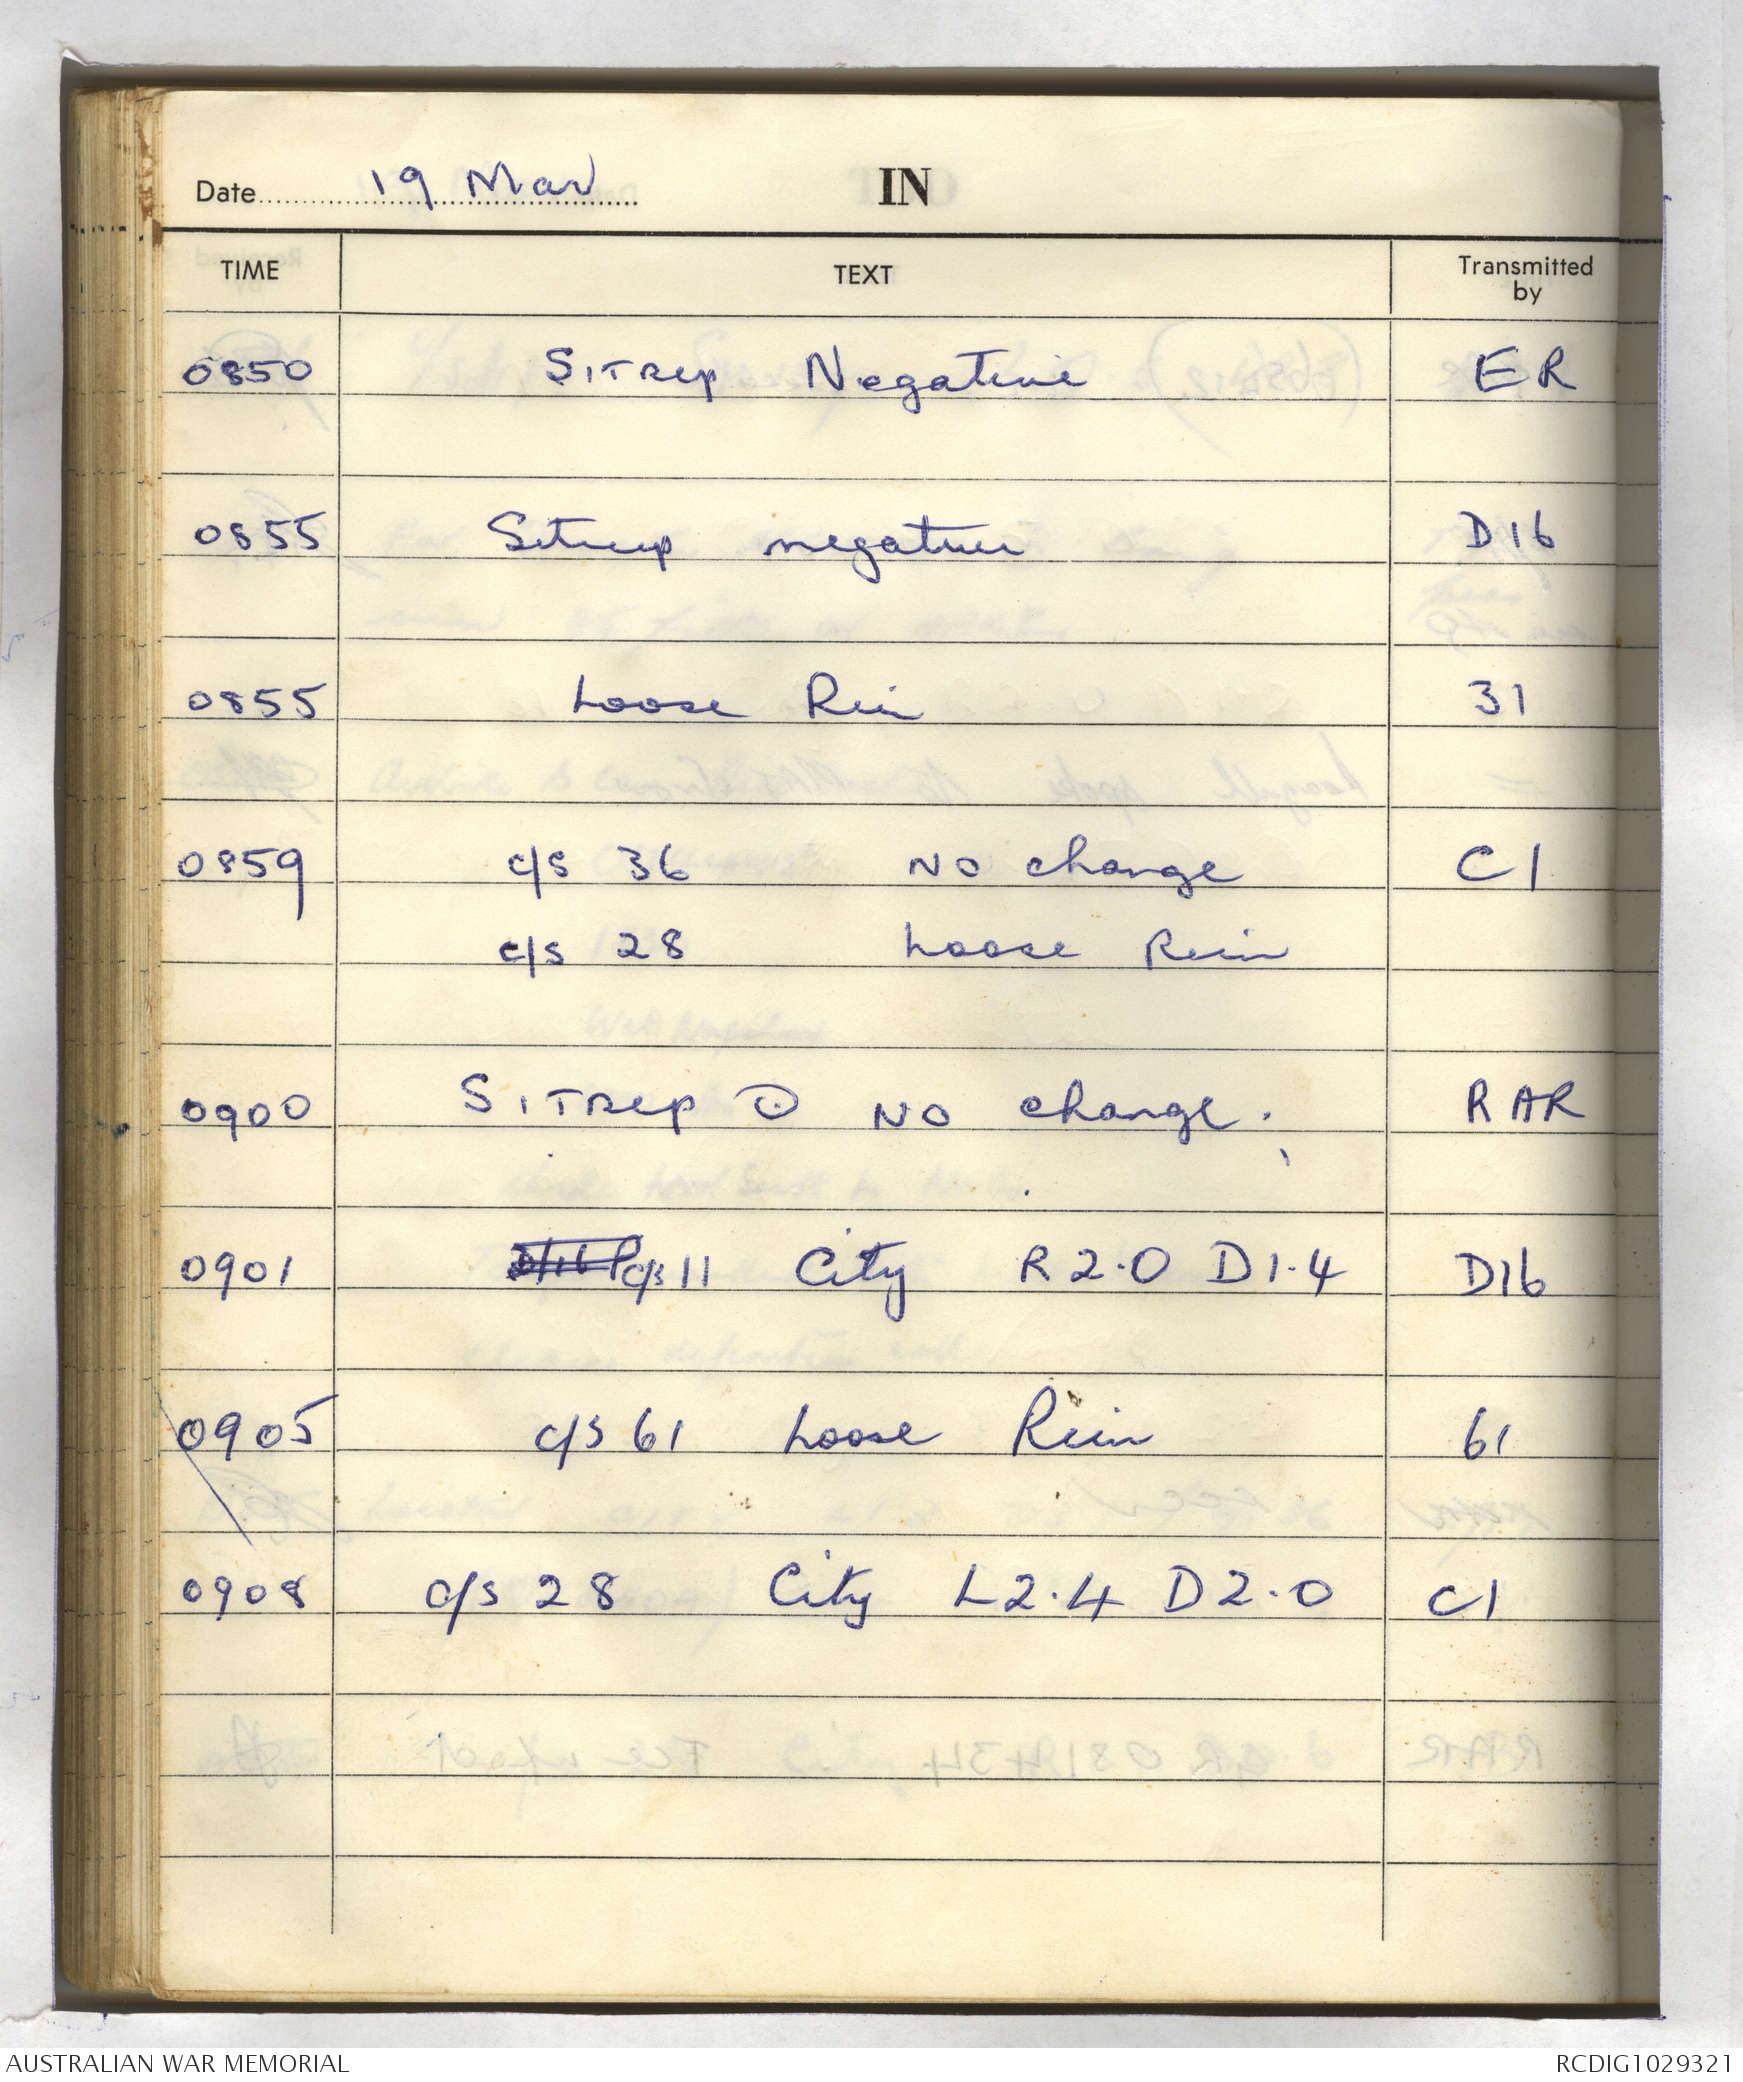 Date 19 Mar IN
TIME TEXT Transmitted by
0850 Sitrep Negative ER
0855 Sitrep negative D16
0855 Loose Rein 31
0859 c/s 36 No change C1
c/s 28 Loose Rein
0900 Sitrep ⊙ No change. RAR
0901 c/s 11 City R 2.0 D 1.4 D16
0905 c/s 61 Loose Rein 61
0908 c/s 28 City L 2.4 D 2.0 C1
AUSTRALIAN WAR MEMORIAL RCDIG1029321